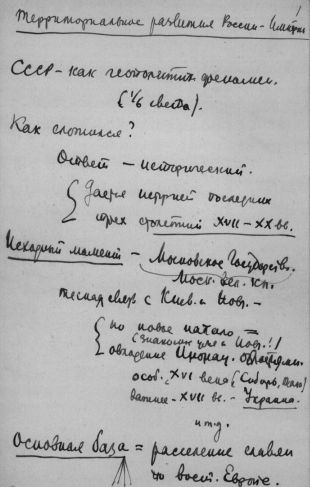 Территориальное развитие России - Империи
СССР - как геополитич. феномен.
(1/6 света).
Как сложился?
Ответ - исторический.
Дается историей последних
трех столетий XVII - XX вв.
Исходный момент - Московское Государство.
Моск. Вел. Кн.
тесная связь с Киев. и Новг. -
но новое начало =
(знаком уже и Новг.!!
овладение Инонац. областями.
особ. XVI века (Сибирь,
важнее - XVII в. - Украина.
и т.д.
Основная база = расселение славян
по вост. Европе.